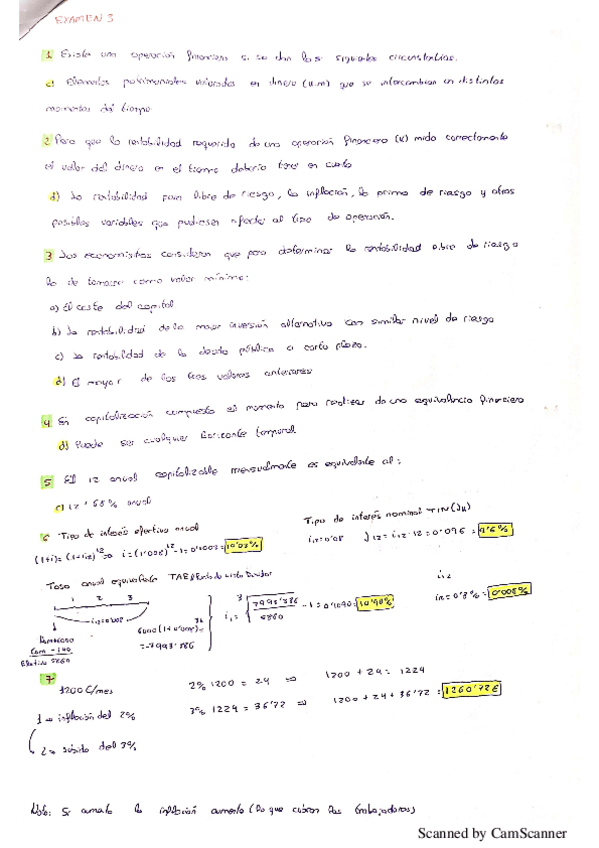 EXAMEN 3
1 Existe una operación financiera si se dan las siguientes circunstancias.
c) Elementos patrimoniales valorados en dinero (u.m) que se intercambian en distintos
momentos del tiempo
2 Para que la rentabilidad requerida de una operación financiera (K) mida correctamente
el valor del dinero en el tiempo debería tener en cuenta
d) La rentabilidad pura libre de riesgo, la inflación, la prima de riesgo y otras
posibles variables que pudiesen afectar al tipo de operación.
3 Los economistas consideran que para determinar la rentabilidad libre de riesgo
ha de tomarse como valor mínimo:
a) El coste del capital
b) La rentabilidad de la mejor inversión alternativa con similar nivel de riesgo
c) La rentabilidad de la deuda pública a corto plazo.
d) El mayor de los tres valores anteriores
4 En capitalización compuesta el momento para realizar una equivalencia financiera
d) Puede ser cualquier horizonte temporal
5 El 12 anual capitalizable mensualmente es equivalente al:
c) 12'68% anual
6 Tipo de interés efectivo anual
(1+i)=(1+i12)^12 => i=(1'008)^12-1=0'1003=10'03%
Tipo de interés nominal TIN (JK)
J12=i12·12=0'096=9'6%
Tasa anual equivalente TAE
1 2 3
i12=0'008
Com -140
Efectivo 5860
6000(1+0'008)^36
=-7993'386
7993'386
5860
-1=0'1090=10'90%
i12
i12=0'8%=0'008%
7
1200 €/mes
2% 1200 = 24 => 1200 + 24 = 1224
1 => inflación del 2%
3% 1224 = 36'72 => 1200 + 24 + 36'72 = 1260'72€
2 => subida del 3%
Nota: Si aumenta la inflación aumenta (lo que cobran los trabajadores)
Scanned by CamScanner